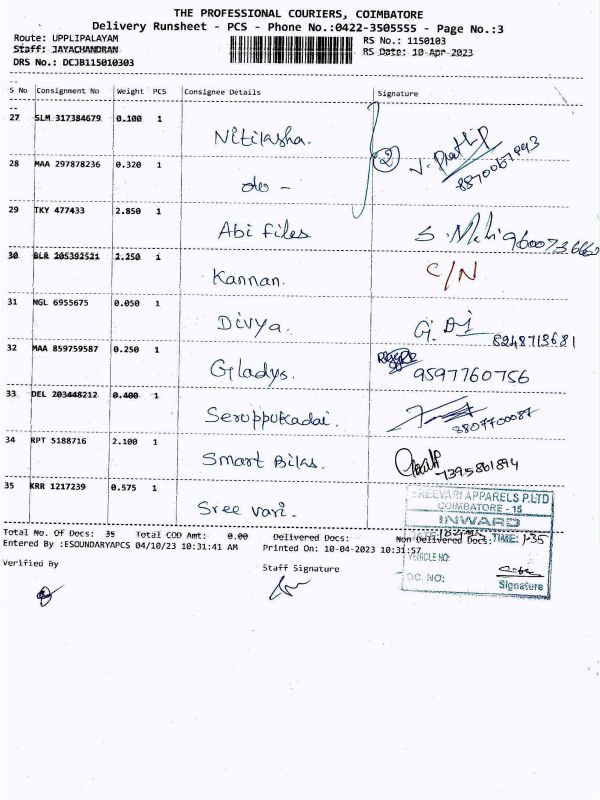 THE PROFESSIONAL COURIERS, COIMBATORE
Delivery Runsheet - PCS - Phone No.:0422-3505555 - Page No.:3
Route: UPPLIPALAYAM RS No.: 1150103
Staff: JAYACHANDRAN RS Date: 10-Apr-2023
DRS No.: DCJB115010303
S No Consignment No Weight PCS Consignee Details Signature
27 SLM 317384679 0.100 1 Nitilasha. 2 J. Prathip 8870067943
28 MAA 297878236 0.320 1 do -
29 TKY 477433 2.850 1 Abi Files 9600736660
30 BLR 205392521 2.250 1 Kannan. C/N
31 NGL 6955675 0.050 1 Divya. 8248713681
32 MAA 859759587 0.250 1 Gladys. 9597760756
33 DEL 203448212 0.400 1 Seruppukadai. 8807700087
34 RPT 5188716 2.100 1 Smart Biks. 7395861894
35 KRR 1217239 0.575 1 Sree vari.
SREEVARI APPARELS P.LTD
COIMBATORE - 15
INWARD
TIME: 1-35
VEHICLE NO:
DC. NO:
Signature
Total No. Of Docs: 35 Total COD Amt: 0.00 Delivered Docs: Non Delivered Docs:
Entered By :ESOUNDARYAPCS 04/10/23 10:31:41 AM Printed On: 10-04-2023 10:31:57
Verified By Staff Signature